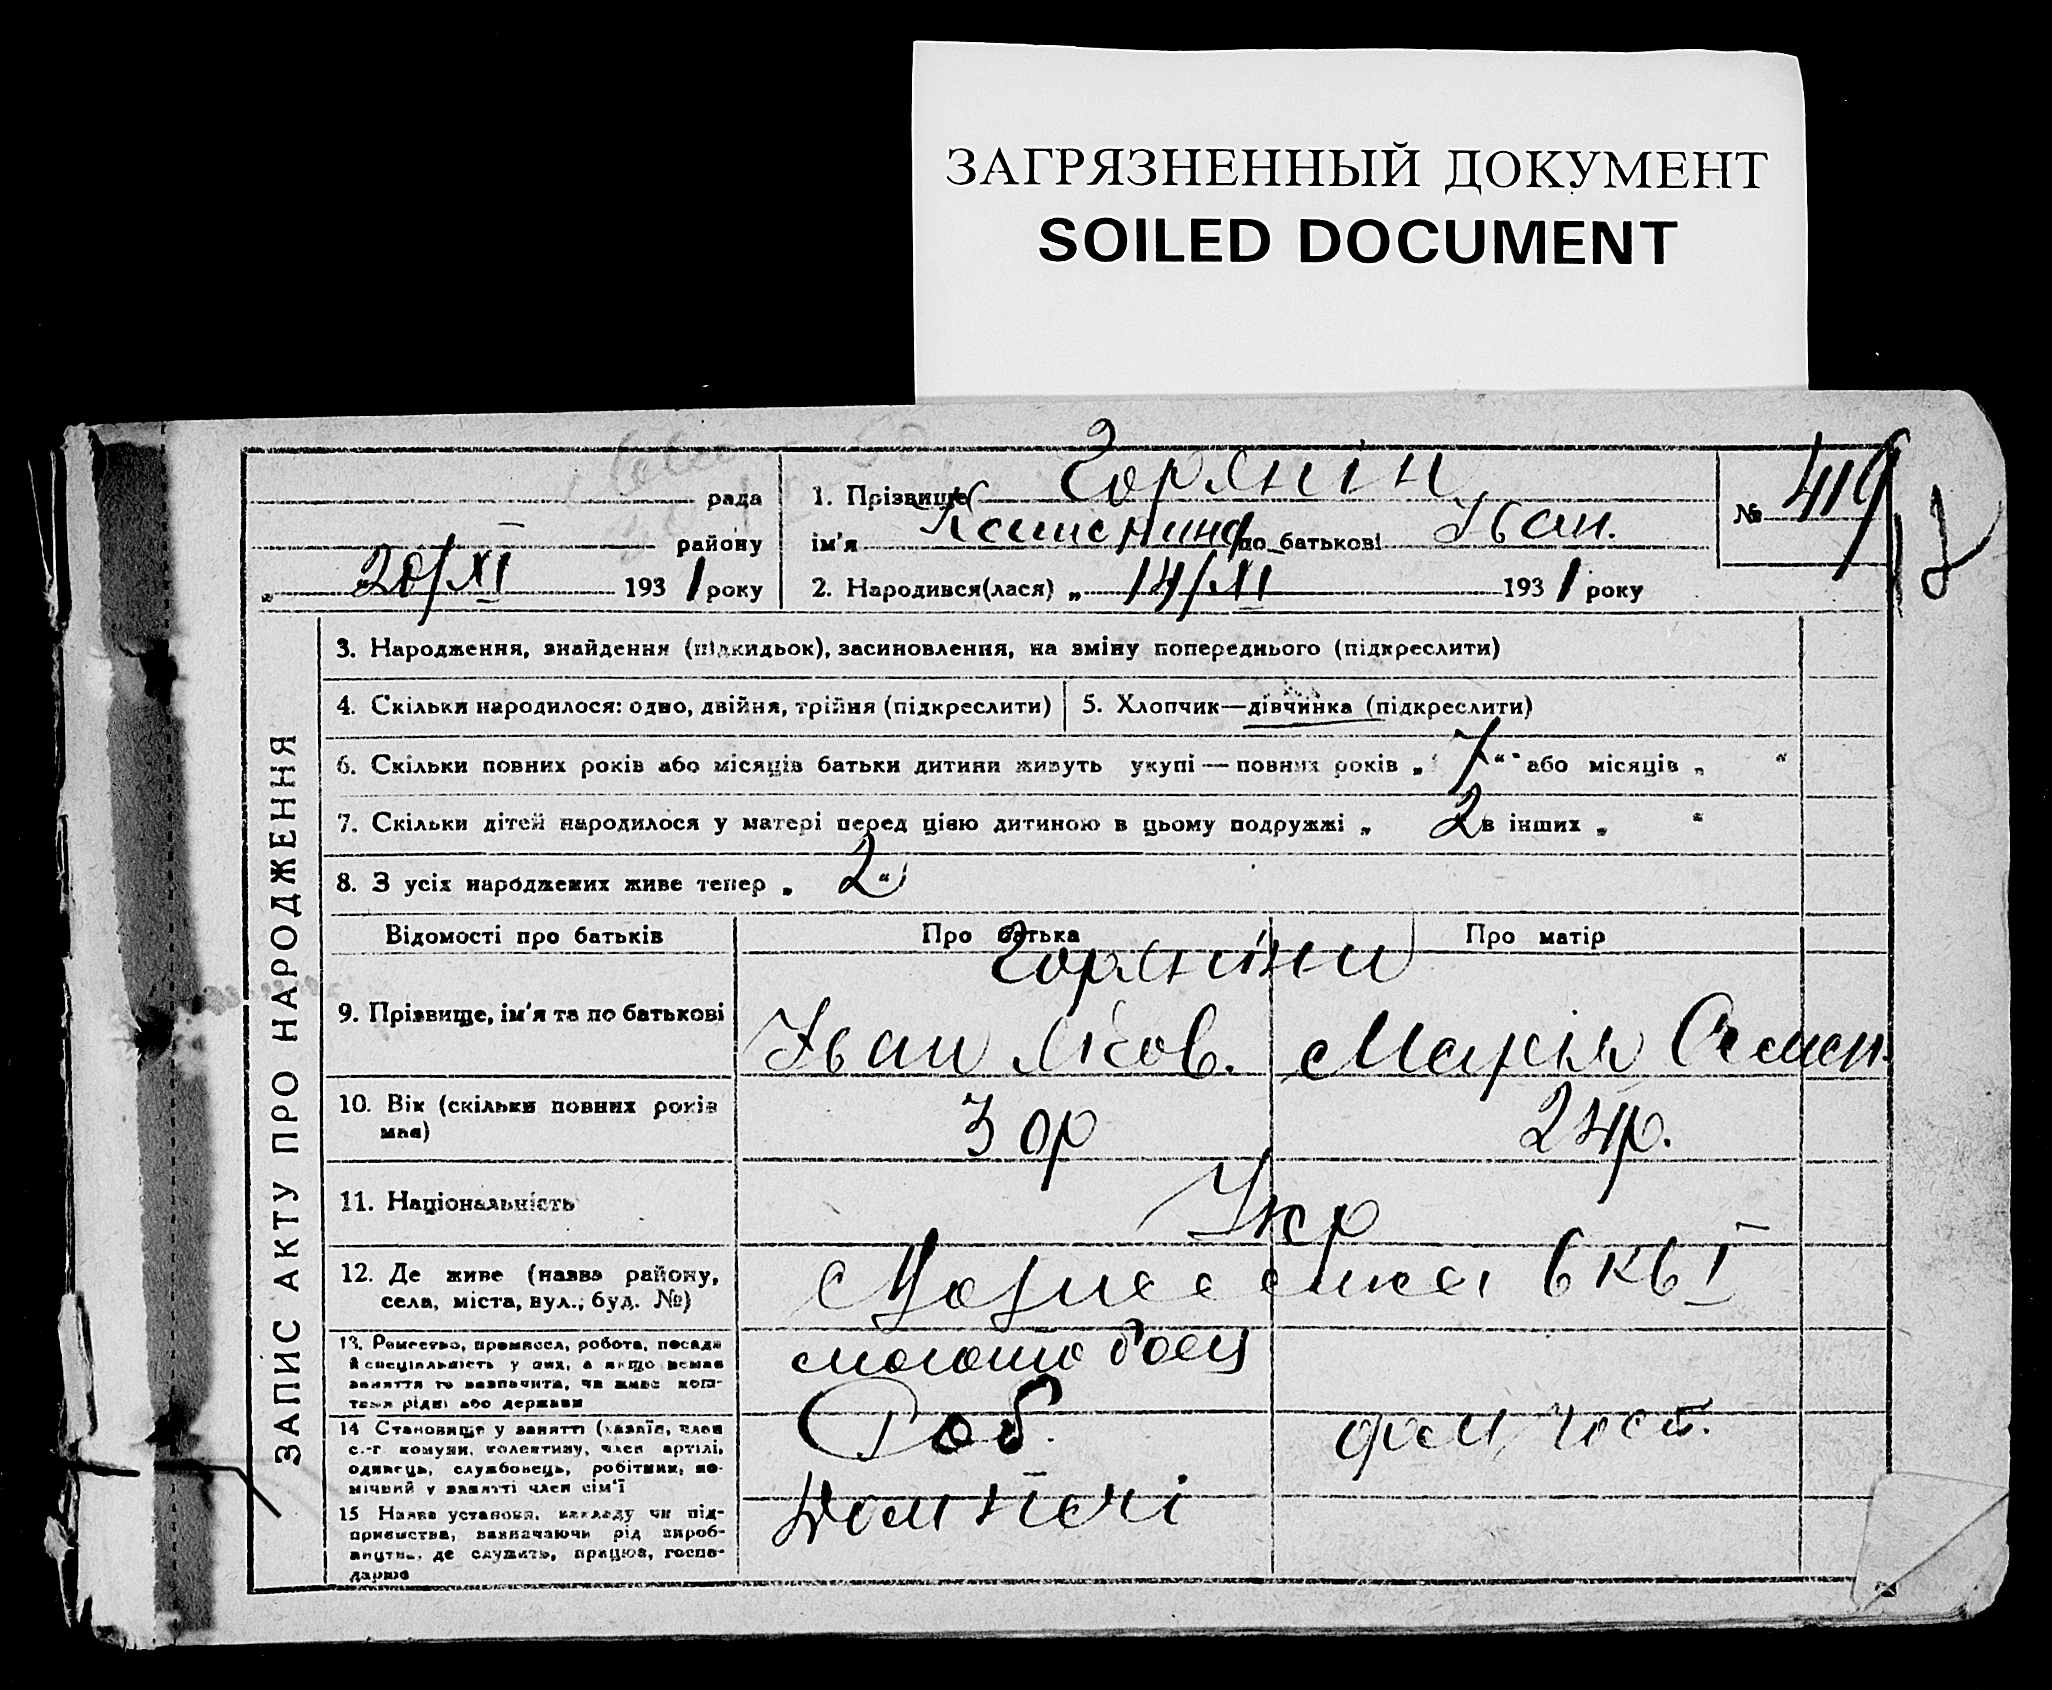 ЗАГРЯЗНЕННЫЙ ДОКУМЕНТ
SOILED DOCUMENT
рада
району
„ 20/XI 1931 року
1. Прізвище Горянін
ім'я по батькові Іван.
2. Народився(лася) „ 14/XI 1931 року
№ 419
ЗАПИС АКТУ ПРО НАРОДЖЕННЯ
3. Народження, знайдення (підкидьок), засиновлення, на зміну попереднього (підкреслити)
4. Скільки народилося: одно, двійня, трійня (підкреслити)
5. Хлопчик—дівчинка (підкреслити)
6. Скільки повних років або місяців батьки дитини живуть укупі — повних років „ 7 “ або місяців „ “
7. Скільки дітей народилося у матері перед цією дитиною в цьому подружжі „ 2 в інших „ “
8. З усіх народжених живе тепер „ 2 “
Відомості про батьків
Про батька
Про матір
Горяніни
9. Прізвище, ім'я та по батькові
Іван Яков.
Марія Семен.
10. Вік (скільки повних років
має)
30р
24р.
11. Національність
Укр
12. Де живе (назва району,
села, міста, вул., буд. №)
6 кв 1
13. Ремество, промисел, робота, посада
й спеціальність у них, а якщо немає
заняття то зазначити, чи живе кош-
тами рідні або держави
молотобоєц
14 Становище у занятті (хазяїн, член
с.-г комуни, колективу, член артілі,
одинець, службовець, робітник, по-
мічний у занятті член сім'ї
Роб.
15 Назва установи, закладу чи під-
приємства, зазначаючи рід вироб-
ництва, де служить, працює, госпо-
дарює
Домпечі